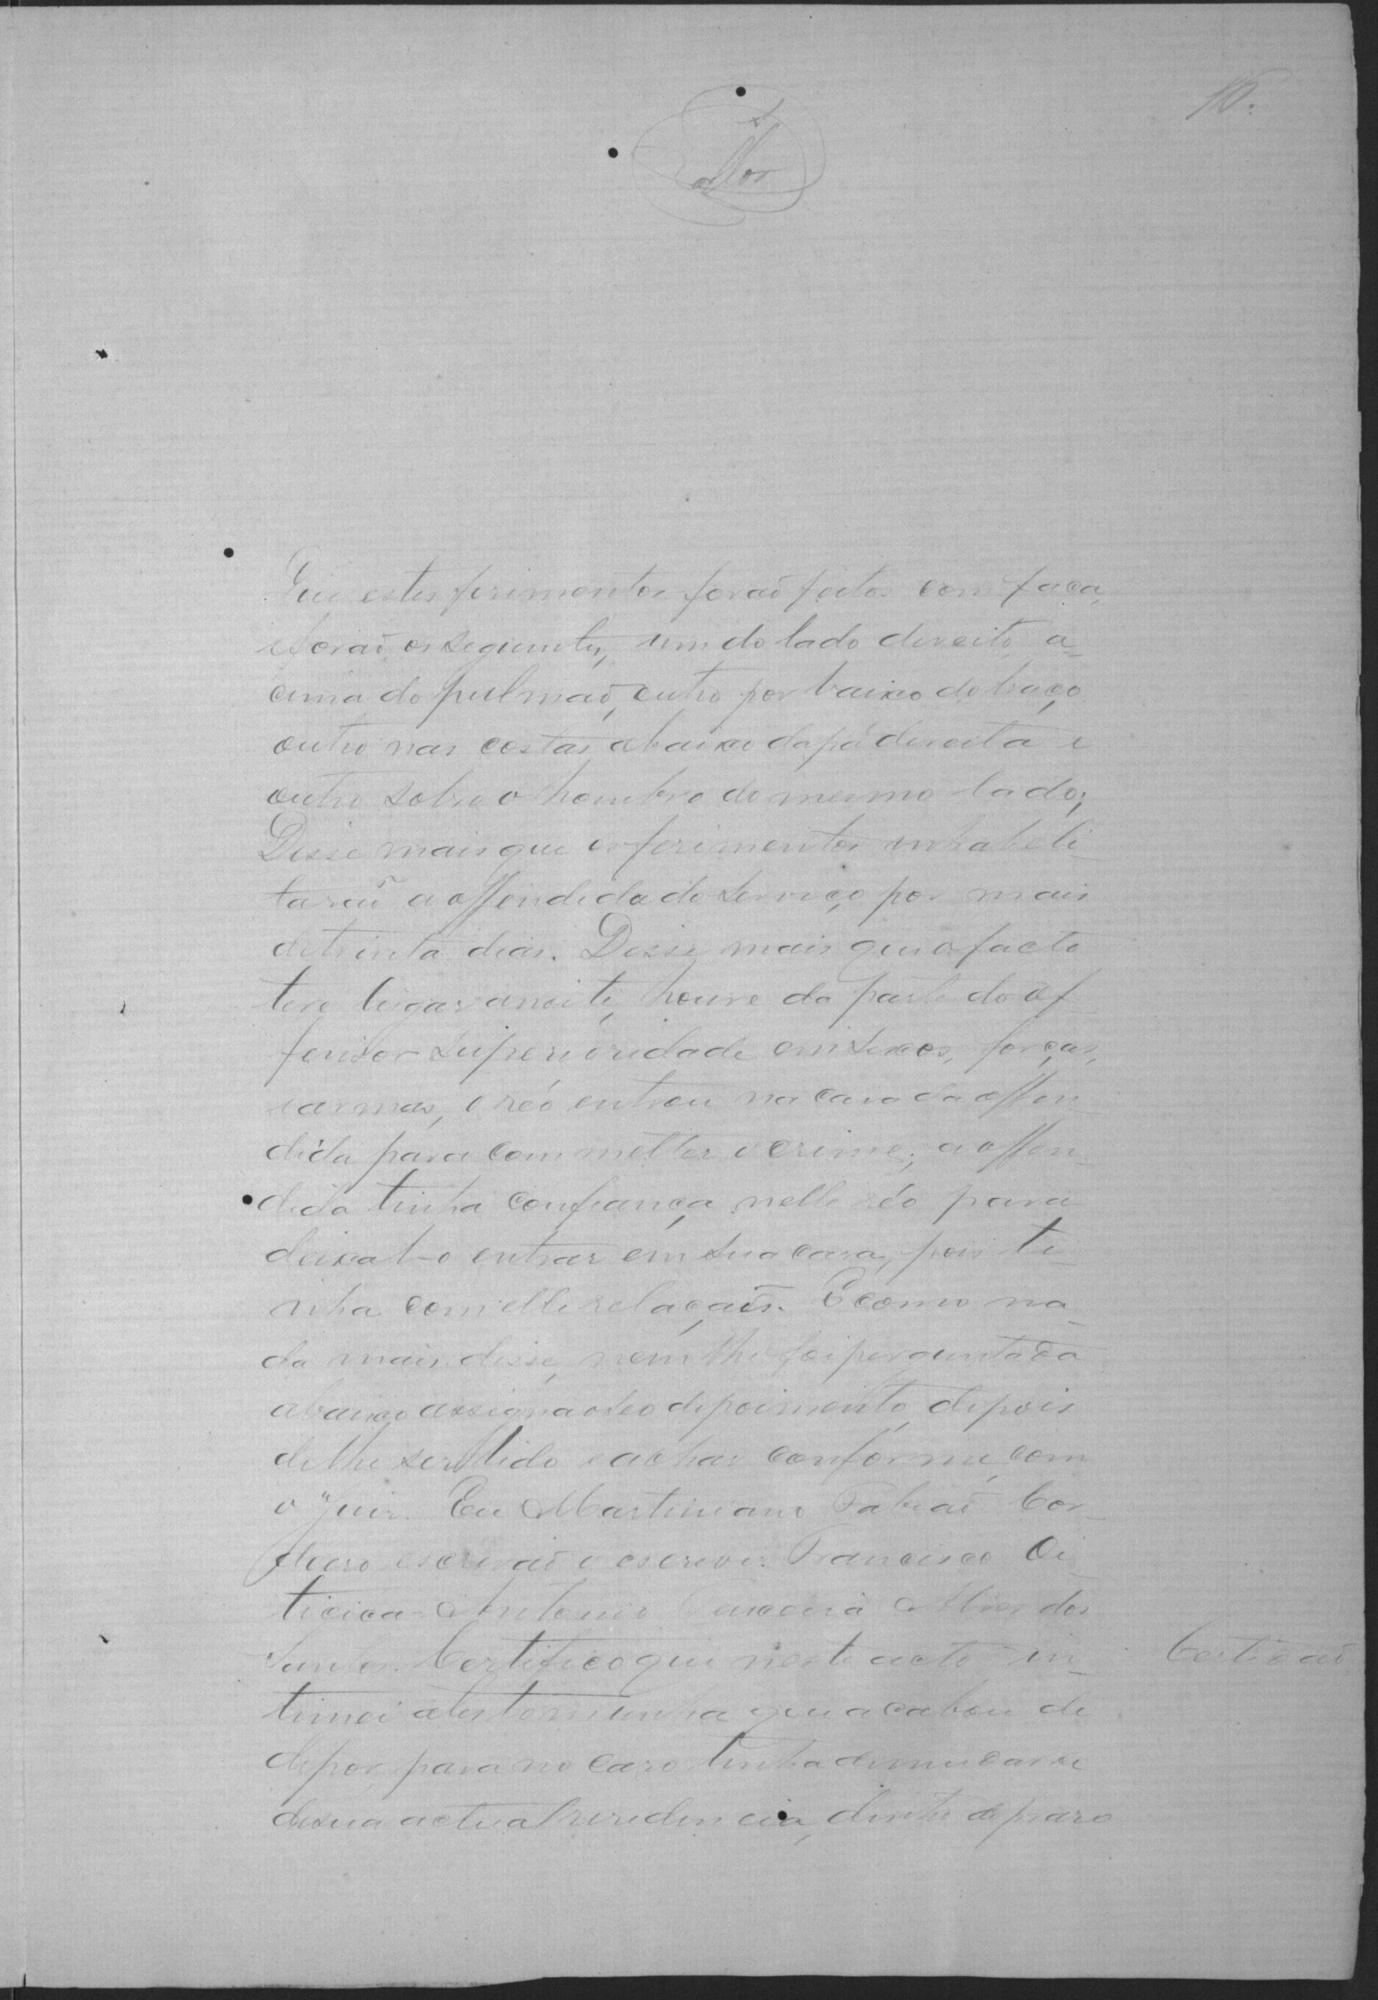 16.
Que estes ferimentos forão feitos com faca,
e forão os seguintes, um do lado direito a-
cima do pulmão, outro por baixo do braço
outro nas costas abaixo da pá direita e
outro sobre o hombro do mesmo lado;
Disse mais que os ferimentos inhabeli-
tarão a offendida do serviço por mais
de trinta dias. Disse mais que o facto
teve lugar a noite, houve da parte do of-
fensor superioridade em sexos, forças,
e armas, o réo entrou na casa da offen-
dida para commetter o crime; a offen-
dida tinha confiança nelle réo para
deixal-o entrar em sua casa, pois ti-
nha com elle relaçoẽs. E como na-
da mais disse, nem lhe foi perguntada
abaixo assigna o seo depoimento, depois
de lhe ser lido e achar conforme, com
o Juiz. Eu Martiniano Fabião Cor-
deiro escrivão o escrevi. Francisco Oi-
ticica. Antonio Teixeira Alves dos
Santos. Certifico que neste acto in-
timei a testemunha que acabou de
depor, para no caso tenha de mudar-se
de sua actual residencia, dentro do praso
Certidão